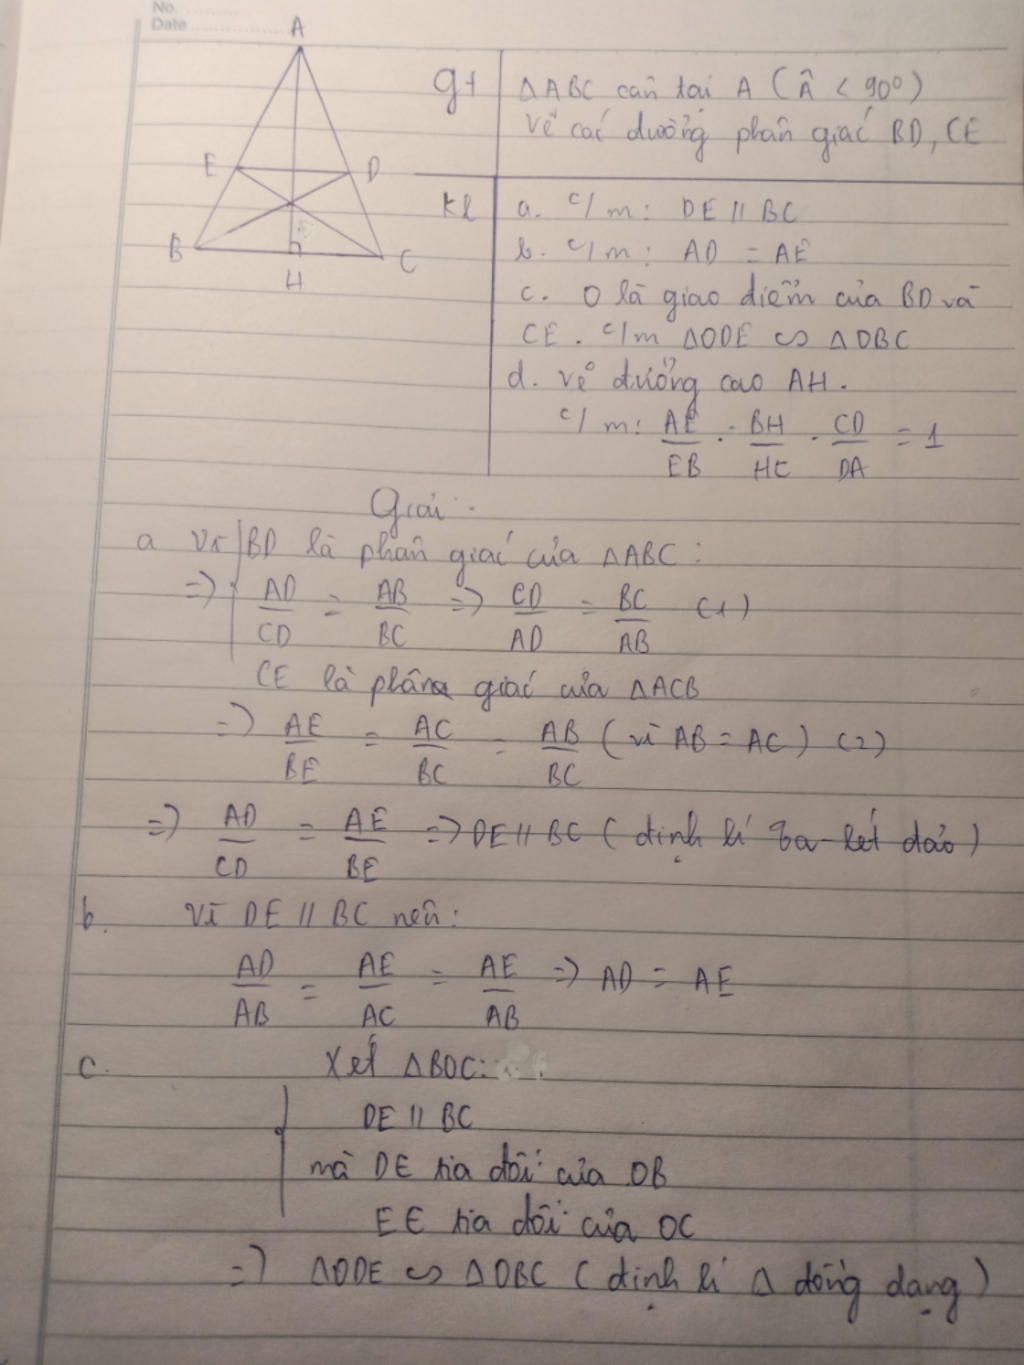 No. ..........
Date ...............
A
E
D
B
H
C
gt
ΔABC cân tại A (Â < 90°)
Vẽ các đường phân giác BD, CE
kl
a. c/m: DE // BC
b. c/m: AD = AE
c. O là giao điểm của BD và
CE. c/m ΔODE ∽ ΔOBC
d. vẽ đường cao AH.
c/m: AE/EB . BH/HC . CD/DA = 1
Giải.
a Vì BD là phân giác của ΔABC:
=> AD/CD = AB/BC => CD/AD = BC/AB (1)
CE là phân giác của ΔACB
=> AE/BE = AC/BC = AB/BC (vì AB = AC) (2)
=> AD/CD = AE/BE => DE // BC (định lí Ta-lét đảo)
b. Vì DE // BC nên:
AD/AB = AE/AC = AE/AB => AD = AE
c. Xét ΔBOC:
DE // BC
mà DE tia đối của OB
EE tia đối của OC
=> ΔODE ∽ ΔOBC (định lí Δ đồng dạng)